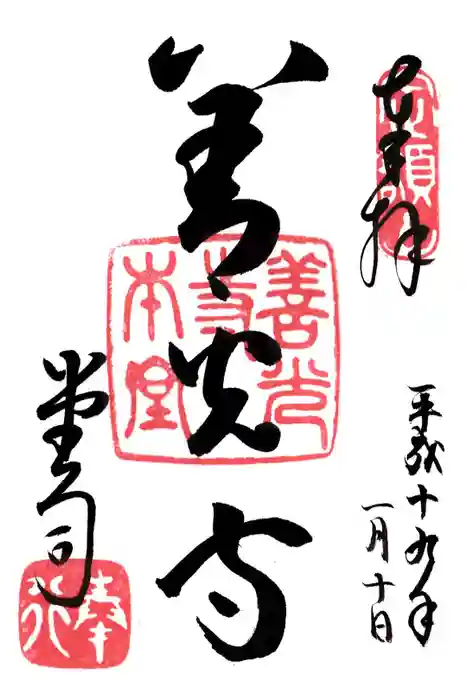 奉拝
善光寺
善光寺本堂
平成十九年
一月十日
堂司
奉行